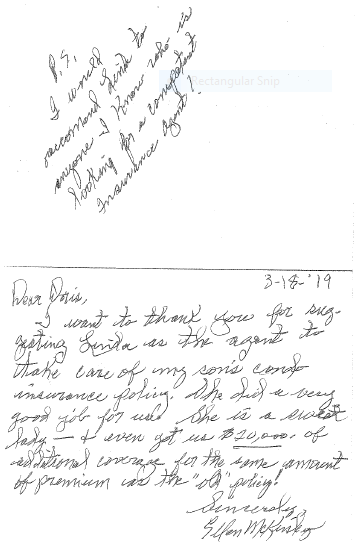 P.S.
I would
reccomend Linda to
anyone I know who is
looking for a competent
insurance agent!
Rectangular Snip
3-18-'19
Dear Doris,
I want to thank you for sug-
gesting Linda as the agent to
take care of my son's condo
insurance policy. She did a very
good job for us. She is a sweet
lady — & even got us $20,000. of
additional coverage for the same amount
of premium as the "old" policy!
Sincerely,
Ellen McKinley